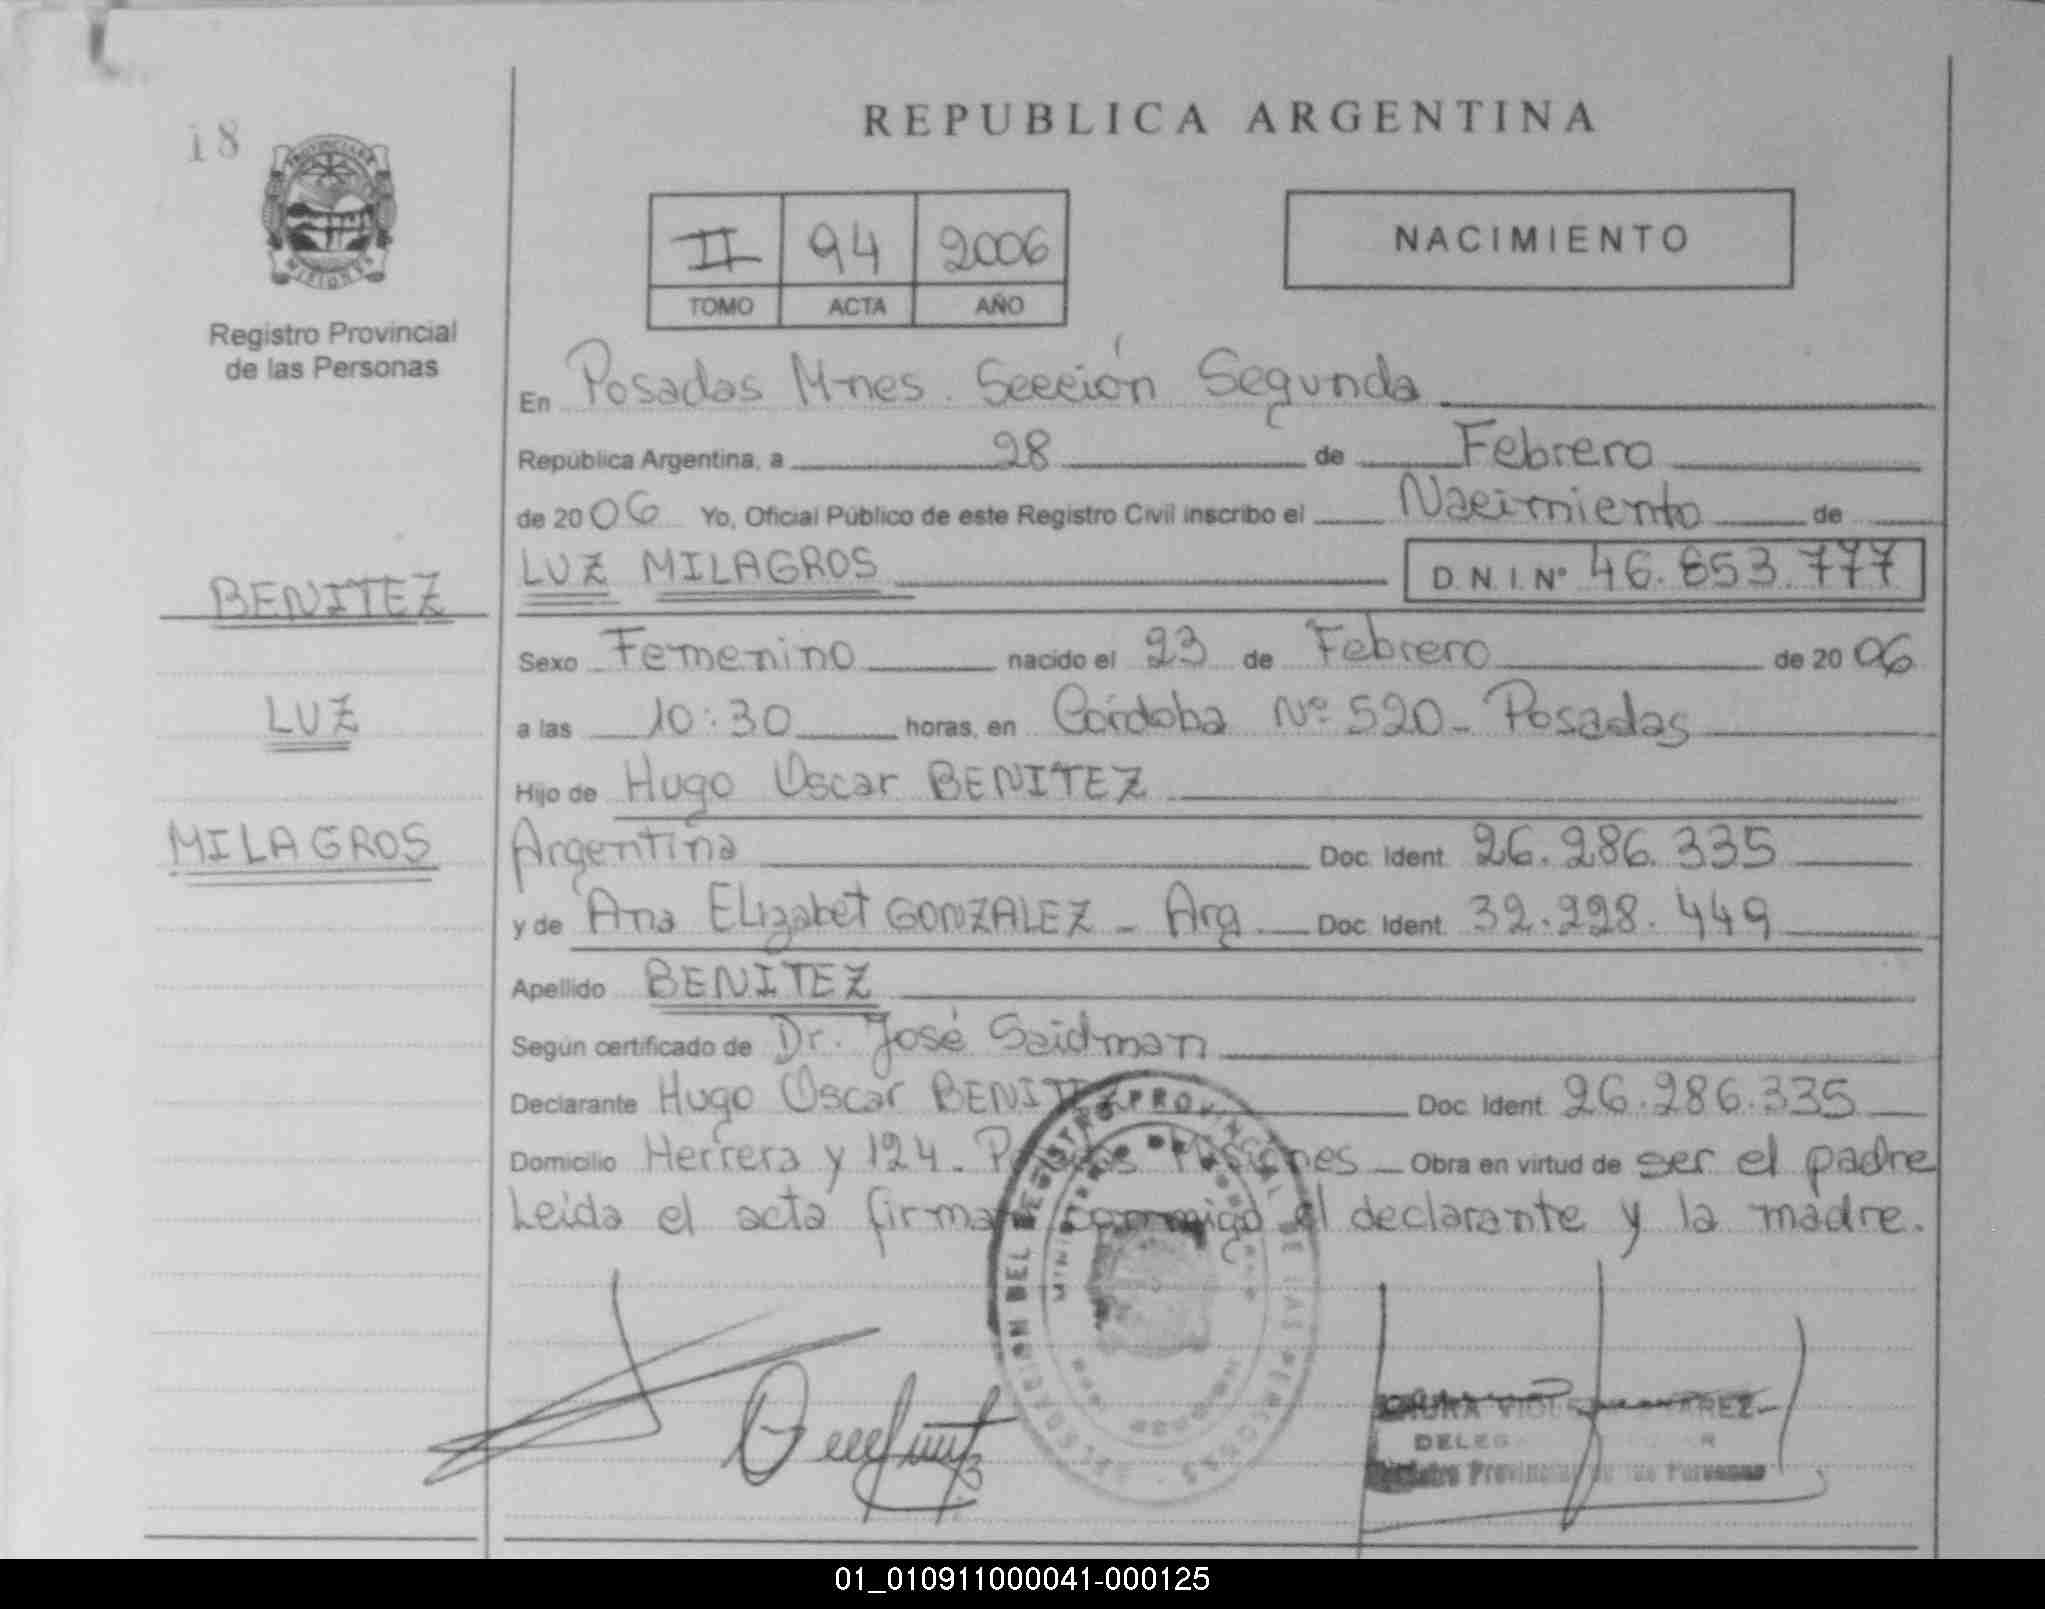 REPUBLICA ARGENTINA
18
PROVINCIA DE MISIONES
Registro Provincial
de las Personas
II 94 2006
TOMO ACTA AÑO
NACIMIENTO
En Posadas Mnes. Sección Segunda
República Argentina, a 28 de Febrero
de 2006 Yo, Oficial Público de este Registro Civil inscribo el Nacimiento de
LUZ MILAGROS D.N.I.Nº 46.853.777
BENITEZ
Sexo Femenino nacido el 23 de Febrero de 2006
LUZ
a las 10:30 horas, en Córdoba Nº 520 - Posadas
Hijo de Hugo Oscar BENITEZ
MILAGROS
Argentina Doc. Ident. 26.286.335
y de Ana Elizabet GONZALEZ - Arg. Doc. Ident. 32.228.449
Apellido BENITEZ
Según certificado de Dr. José Saidman
Declarante Hugo Oscar BENITEZ Doc. Ident. 26.286.335
Domicilio Herrera y 124. Posadas Misiones Obra en virtud de ser el padre
Leída el acta firman conmigo el declarante y la madre.
DEL REGISTRO PROVINCIAL DE LAS PERSONAS
Registro Provincial de las Personas
01_010911000041-000125